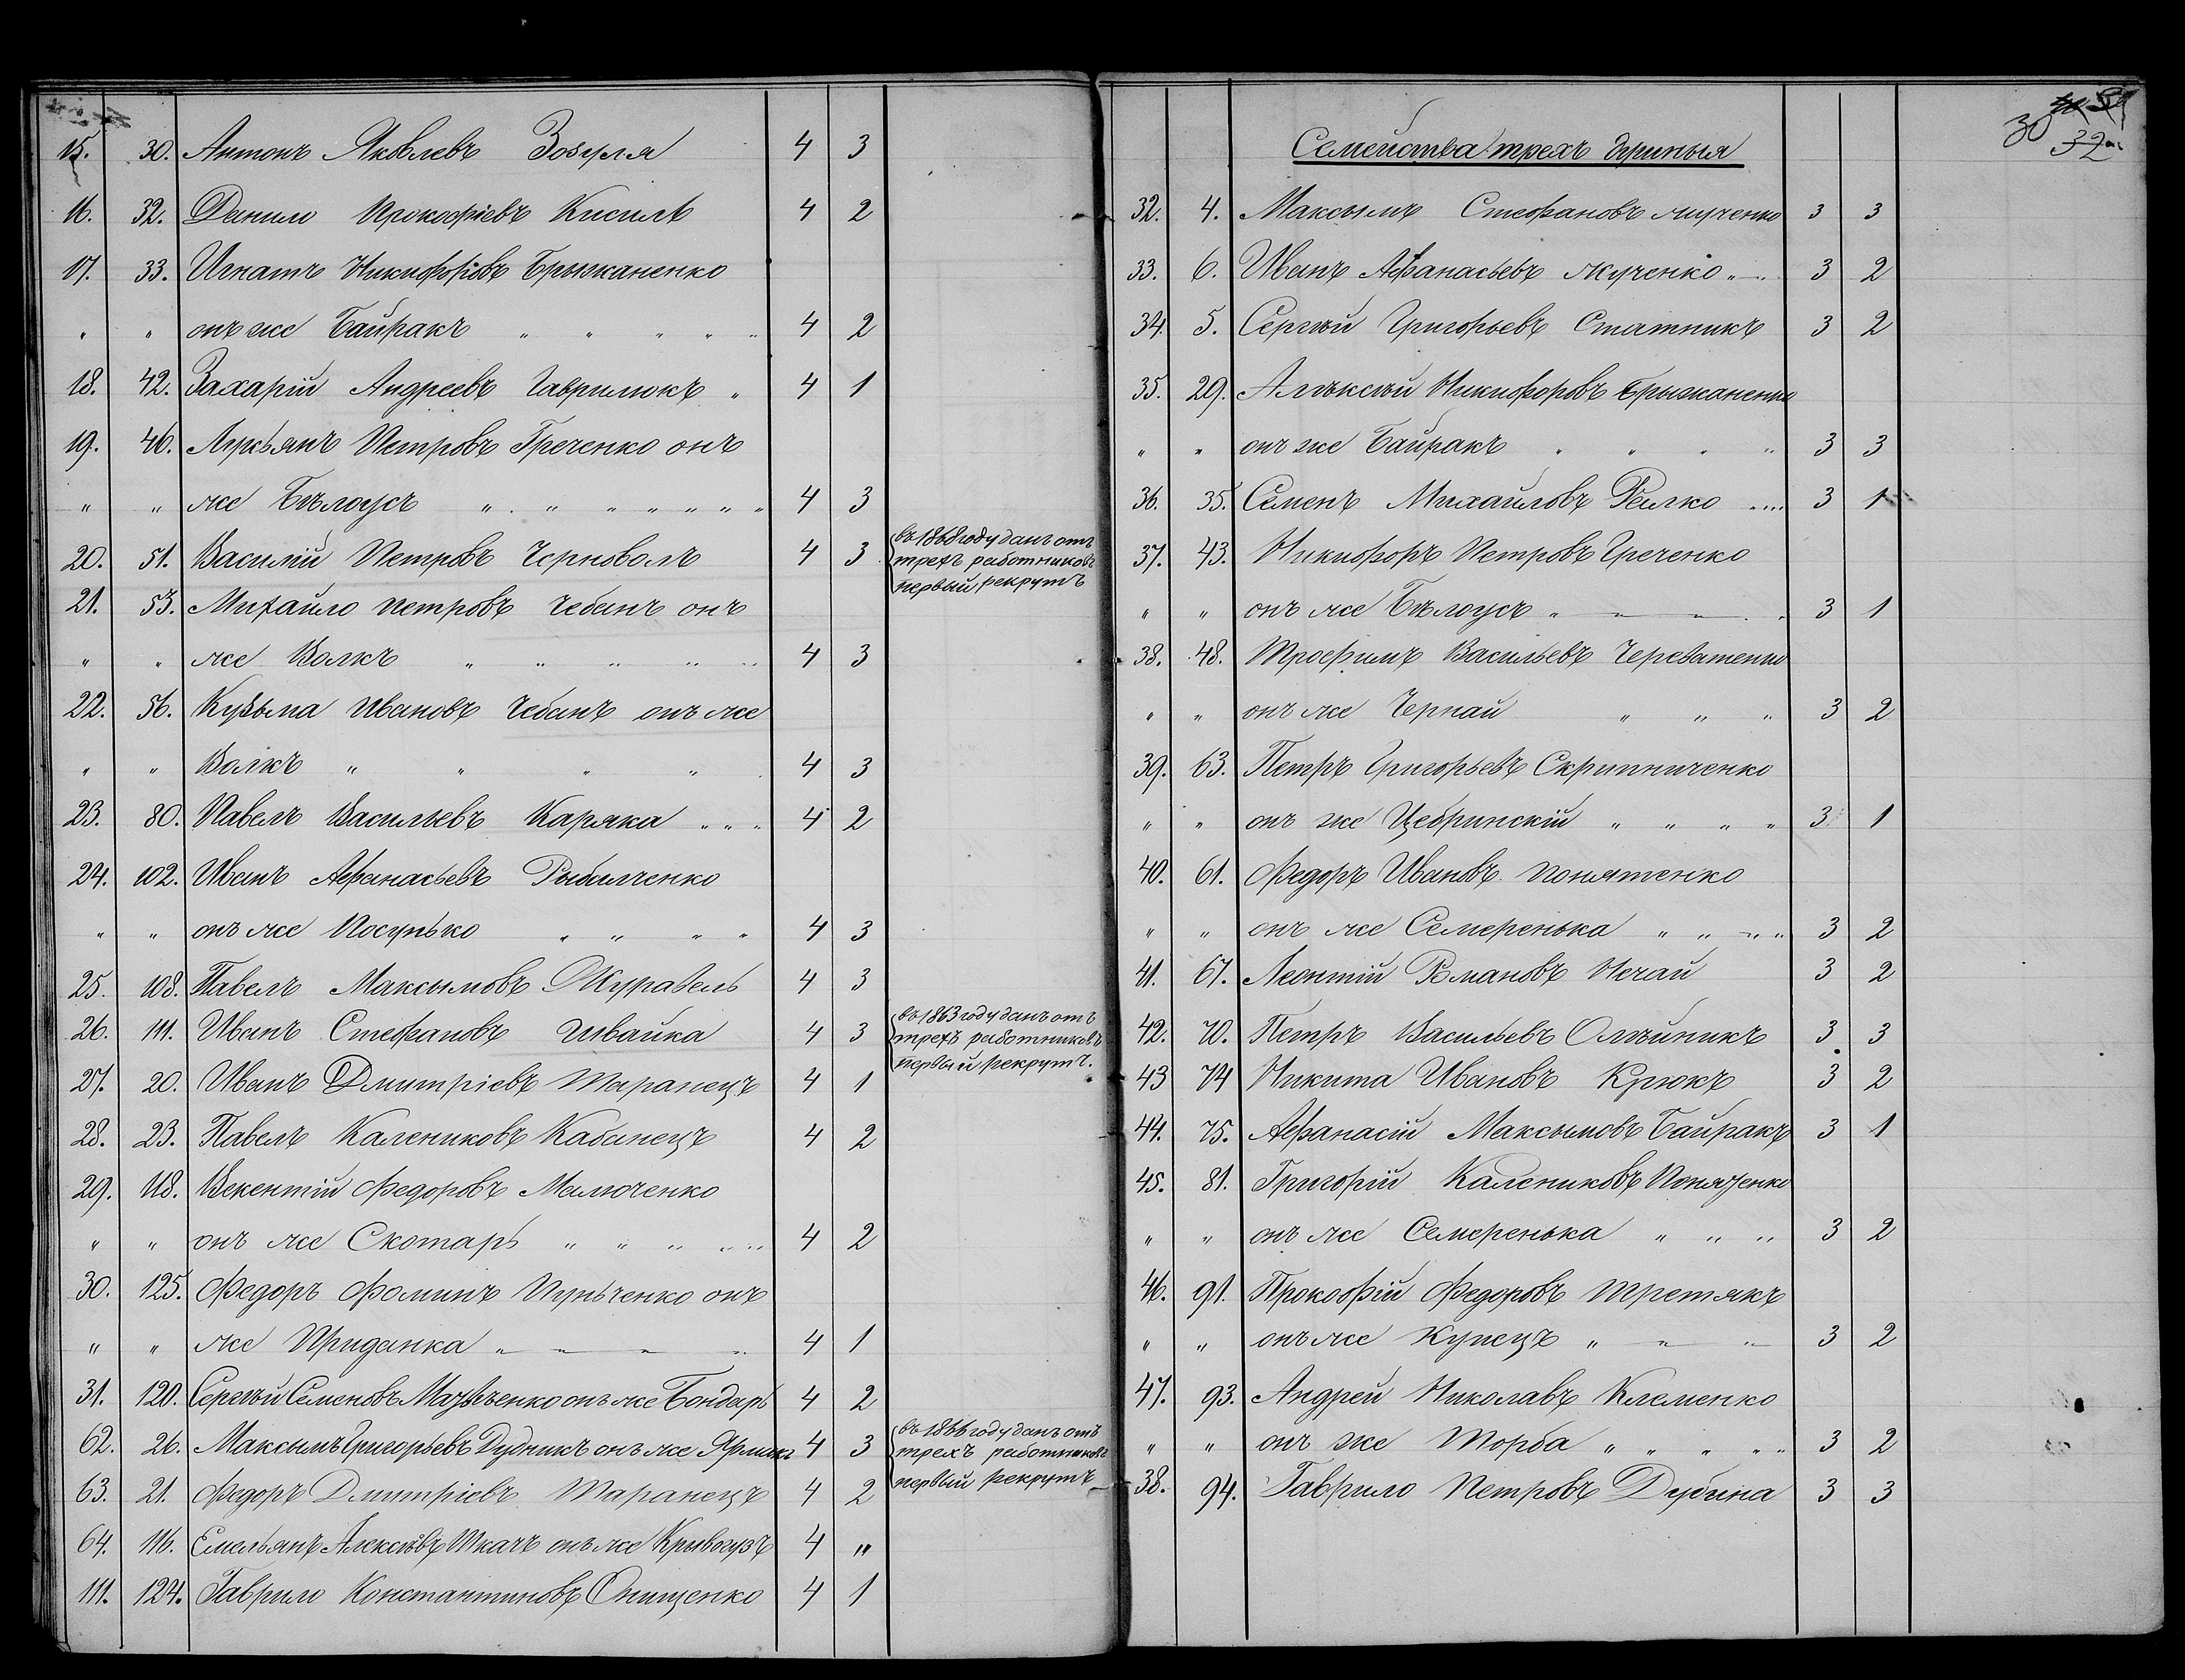 15. 30. Антонъ Яковлевъ Зозуля 4 3
16. 32. Данило Прокофіевъ Кисилъ 4 2
17. 33. Игнатъ Никифоровъ Брыжаненко
" " онъ же Байракъ " " " " " 4 2
18. 42. Захарій Андреевъ Гаврилюкъ " 4 1
19. 46. Лукьянъ Петровъ Греченко онъ
" " же Бѣлоусъ " " " " " " " 4 3
20. 51. Василій Петровъ Черноволъ 4 3 въ 1868 году данъ отъ
трехъ работниковъ
первый рекрутъ
21. 53. Михайло Петровъ Чебанъ онъ
" " же Волкъ " " " " " 4 3
22. 56. Кузьма Ивановъ Чебанъ онъ же
" " Волкъ " " " " 4 3
23. 80. Павелъ Васильевъ Каряка " " " 4 2
24. 102. Иванъ Афанасьевъ Рыбалченко
" " онъ же Посунько " " " " 4 3
25. 108. Павелъ Максымовъ Журавель 4 3
26. 111. Иванъ Стефановъ Швайка 4 3 въ 1863 году данъ отъ
трехъ работниковъ
первый рекрутъ.
27. 20. Иванъ Дмитріевъ Таранецъ 4 1
28. 23. Павелъ Калениковъ Кабанецъ 4 2
29. 118. Векентій Федоровъ Малюченко
" " онъ же Скотаръ " " " " " 4 2
30. 125. Федоръ Фоминъ Пунченко онъ
" " же Приданка " " " " 4 1
31. 120. Сергѣй Семеновъ онъ же Бондаръ 4 2
62. 26. Максымъ Григорьевъ Дудникъ онъ же Ярмакъ 4 3 въ 1866 году данъ отъ
трехъ работниковъ
первый рекрутъ
63. 21. Федоръ Дмитріевъ Таранецъ 4 2
64. 116. Емельянъ Алексѣевъ Ткачъ онъ же Крывогузъ 4 "
111. 124. Гаврило Константиновъ Онищенко 4 1
30 32
Семейства трехъ
32. 4. Максымъ Стефановъ 3 3
33. 6. Иванъ Афанасьевъ " " 3 2
34. 5. Сергѣй Григорьевъ Статникъ 3 2
35. 29. Алѣксѣй Никифоровъ Брыжаненко
" " онъ же Байракъ " " " " 3 3
36. 35. Семенъ Михайловъ Репко " " 3 1
37. 43. Никифоръ Петровъ Греченко
" " онъ же Бѣлоусъ " " " " 3 1
38. 48. Трофимъ Васильевъ Череватенко
" " онъ же Чернай " " " 3 2
39. 63. Петръ Григорьевъ Скрипниченко
" " онъ же Цебринскій " " " " 3 1
40. 61. Федоръ Ивановъ Понятенко
" " онъ же Семеренька " " " " 3 2
41. 67. Леонтій Романовъ Нечай 3 2
42. 70. Петръ Васильевъ Олѣйникъ 3 3
43 74 Никита Ивановъ Крюкъ 3 2
44. 75. Афанасій Максымовъ Байракъ 3 1
45. 81. Григорій Калениковъ Понятенко
" " онъ же Семеренька " " " 3 2
46. 91. Прокофій Федоровъ Третякъ
" " онъ же Купецъ " " " 3 2
47. 93. Андрей Николавъ Клеменко
" " онъ же Торба " " " " " 3 2
38. 94. Гаврило Петровъ Дубина 3 3